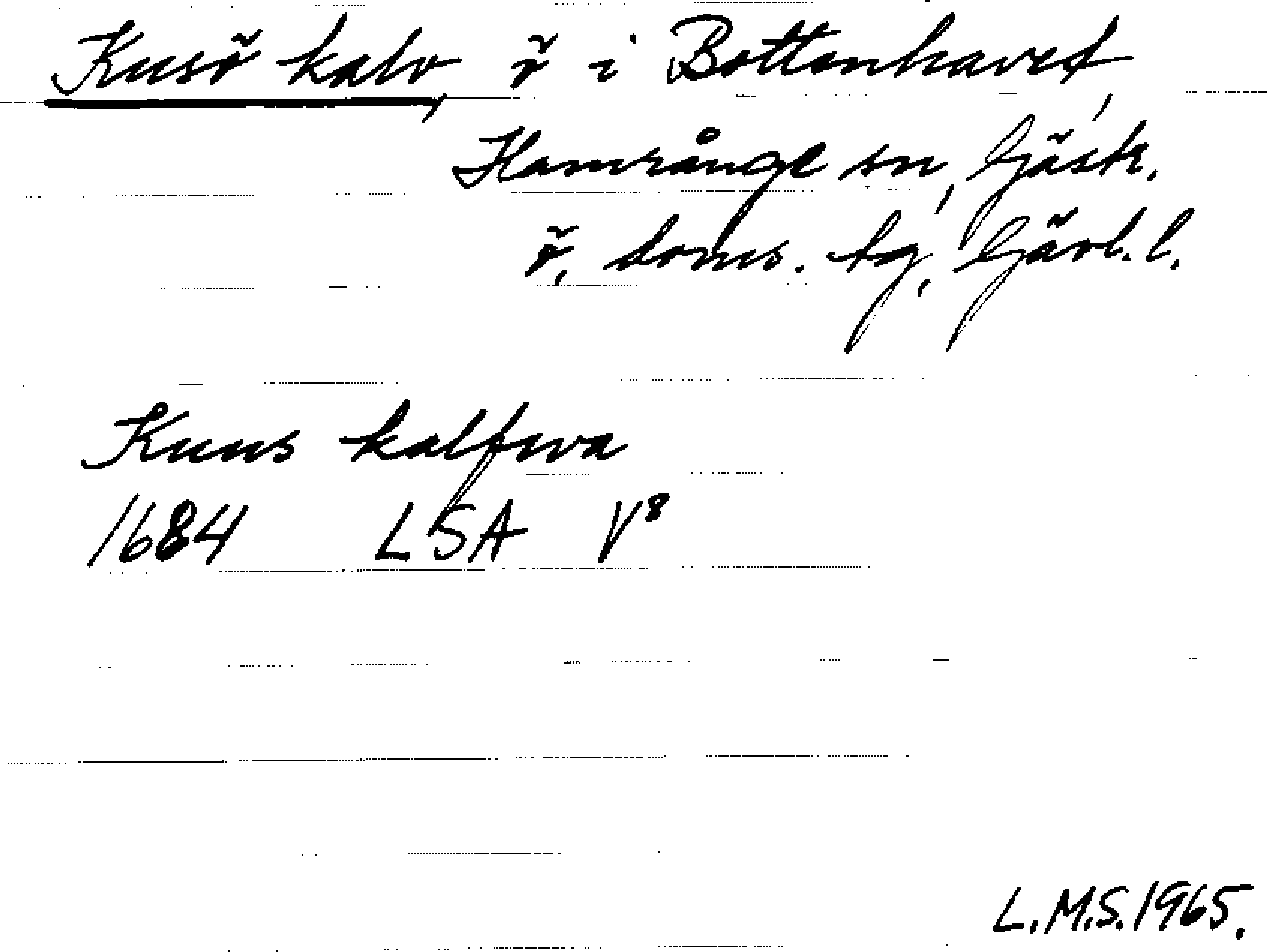 Kusö kalv, ö i Bottenhavet,
Hamrånge sn, Gästr.
ö. doms. tg, Gävl. l.
Kuus kalfwa
1684 LSA V⁸
L.M.S. 1965.